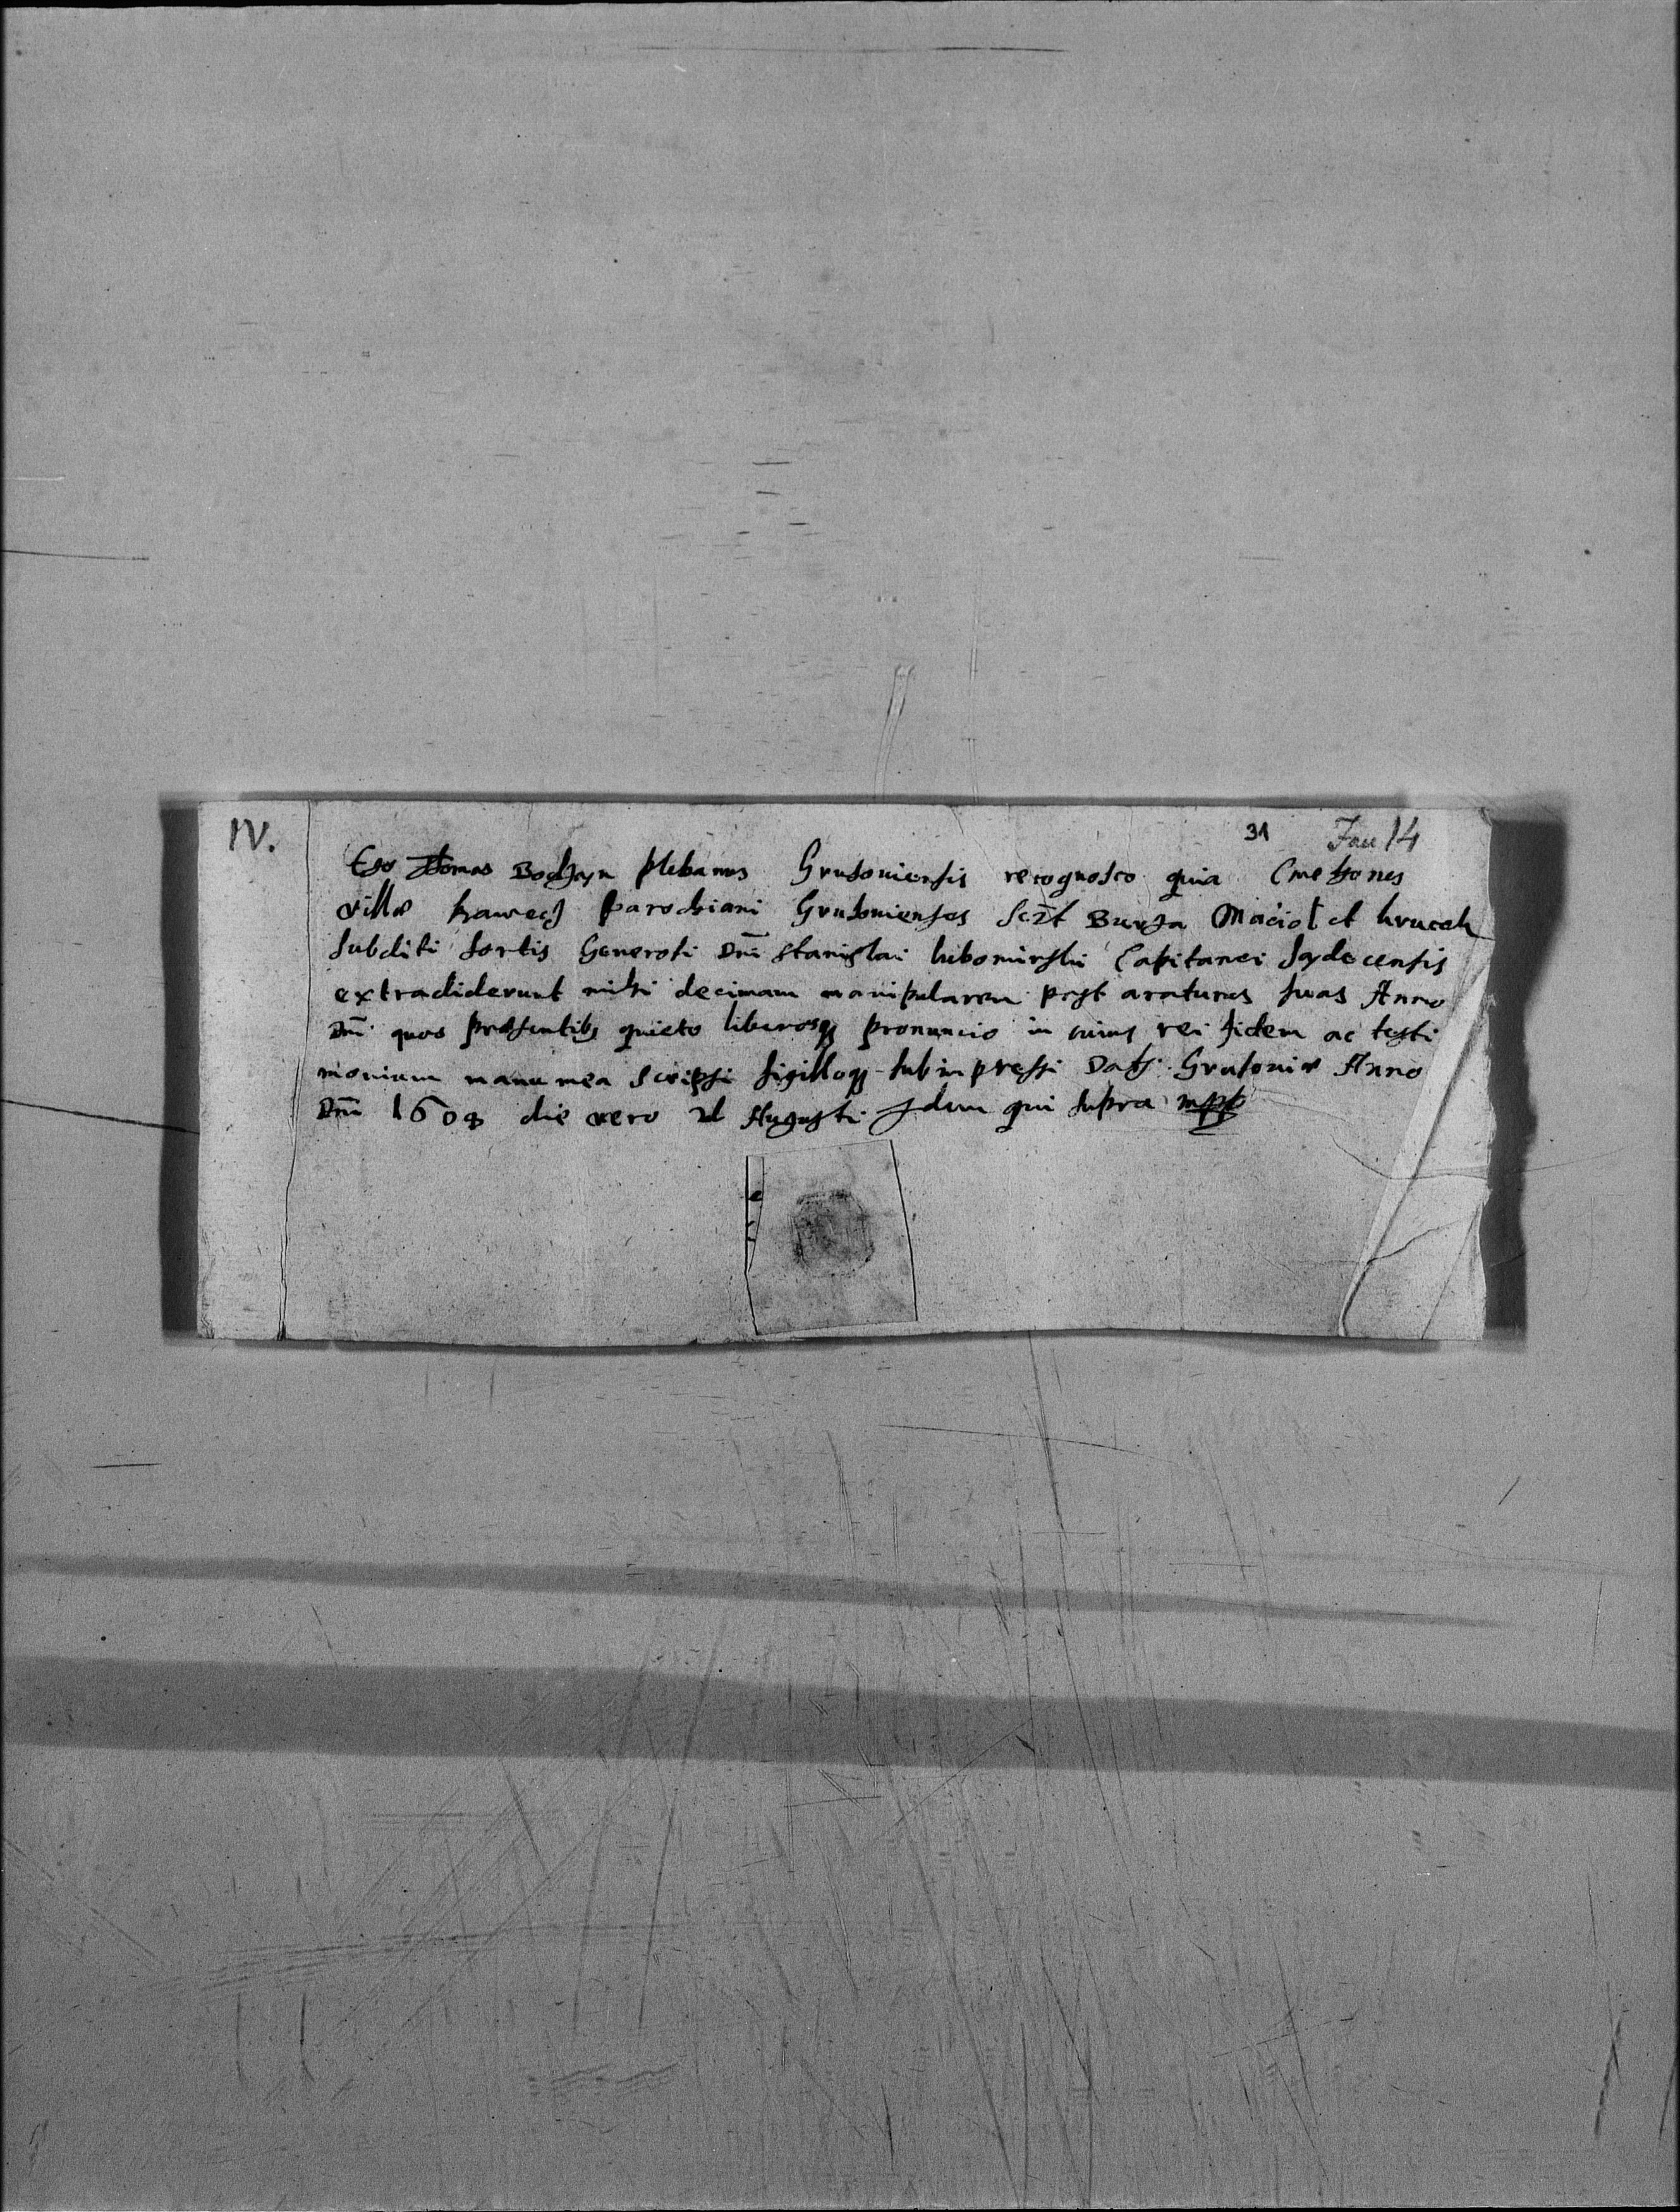 IV.
31 Fau 14
Ego Thomas Bochęn plebanus Grutoviensis recognosco quia Cmethones
villæ kawecz parochiani Grutovienses Sczt Burza Macioł et kruczek
subditi sortis Generosi Dnī Stanislai lubomirski Capitanei Sądecensis
extradiderunt mihi decimam manipularem post araturas suas Anno
Dnī quos præsentibs quieto liberosqз pronuncio in cuius rei fidem ac testi
monium manu mea scripsi sigilloqз subimpressi Dats Grutoviæ Anno
Dnī 160 die vero 21 Augusti Idem qui supra mpp